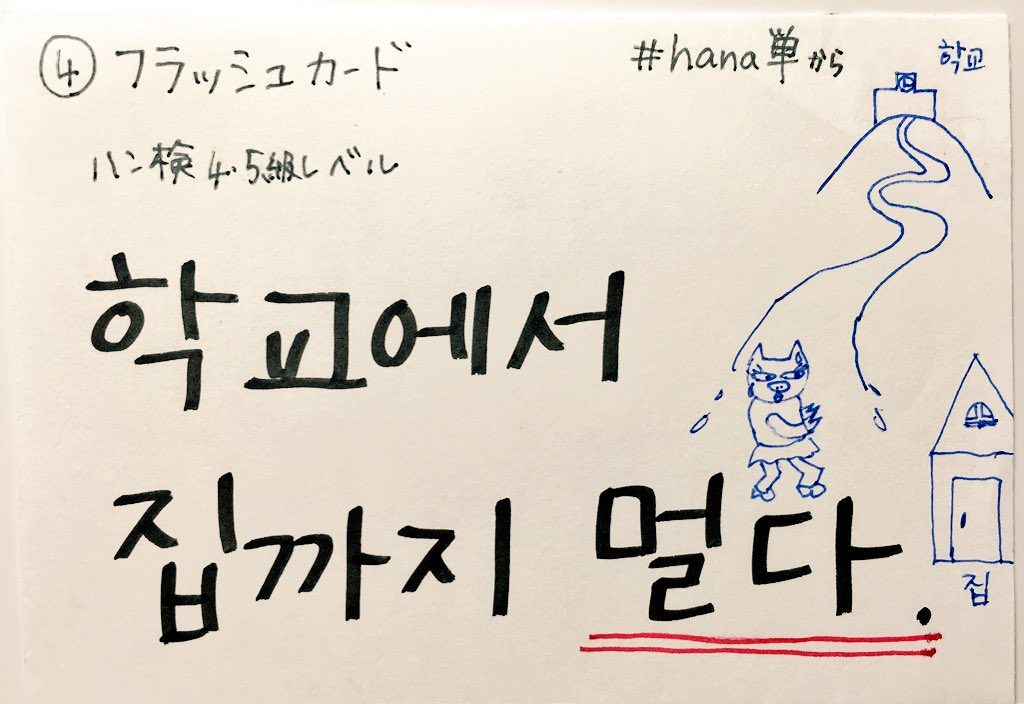 ④ フラッシュカード
#hana単から
학교
ハン検4・5級レベル
학교에서
집까지 멀다.
집